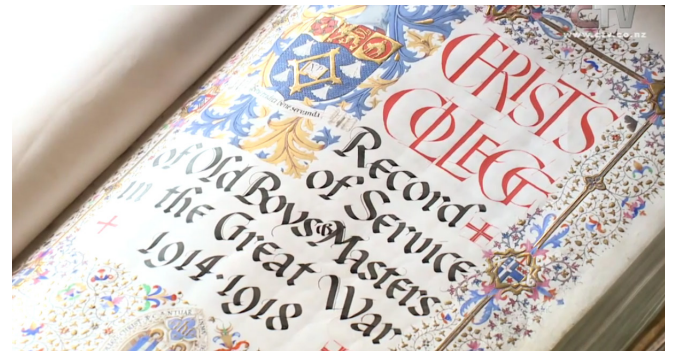 CTV
www.ctv.co.nz
CHRISTS
COLLEGE
Record
of Service
of Old Boys & Masters
in the Great War
1914·1918